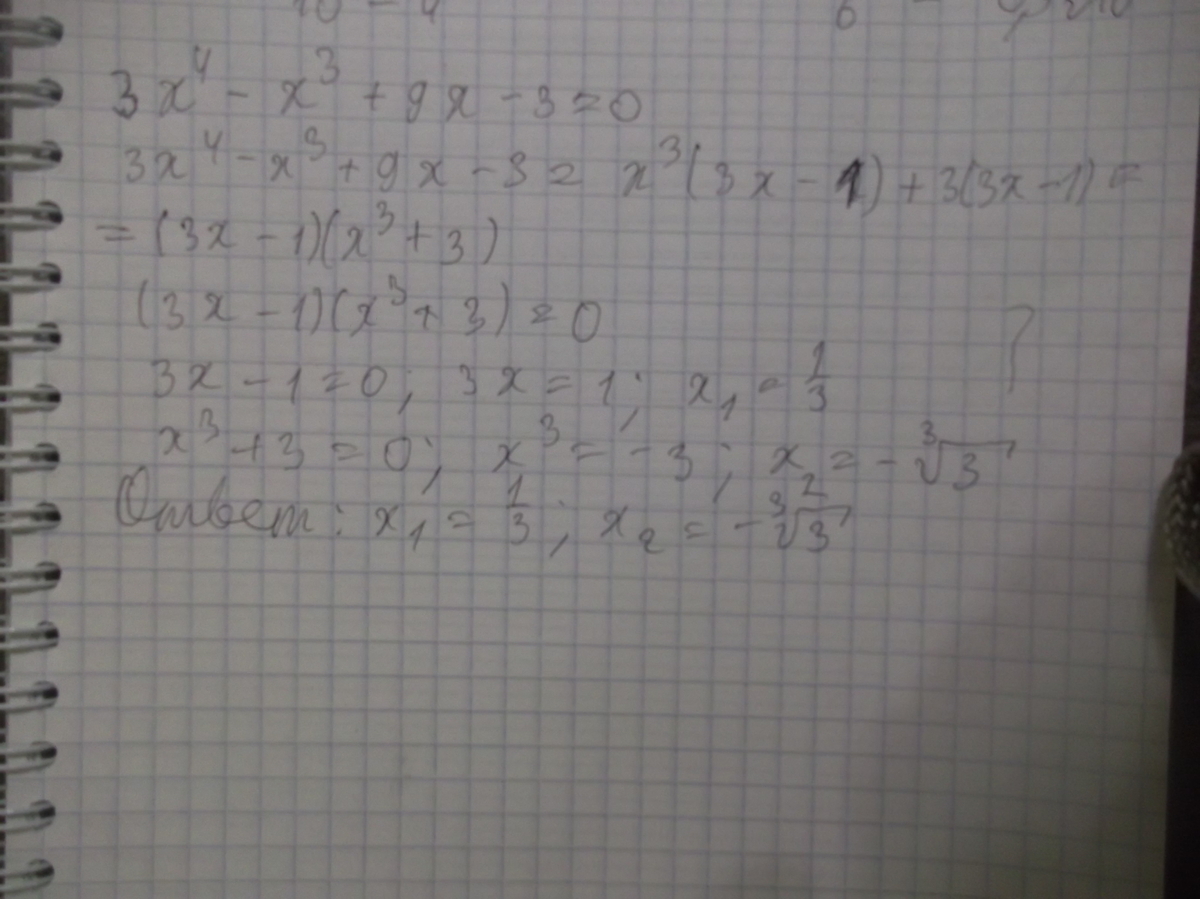 3x⁴ - x³ + 9x - 3 = 0
3x⁴ - x³ + 9x - 3 = x³(3x - 1) + 3(3x - 1) =
= (3x - 1)(x³ + 3)
(3x - 1)(x³ + 3) = 0
3x - 1 = 0; 3x = 1; x₁ = 1/3
x³ + 3 = 0; x³ = -3; x₂ = -∛3
Ответ: x₁ = 1/3; x₂ = -∛3